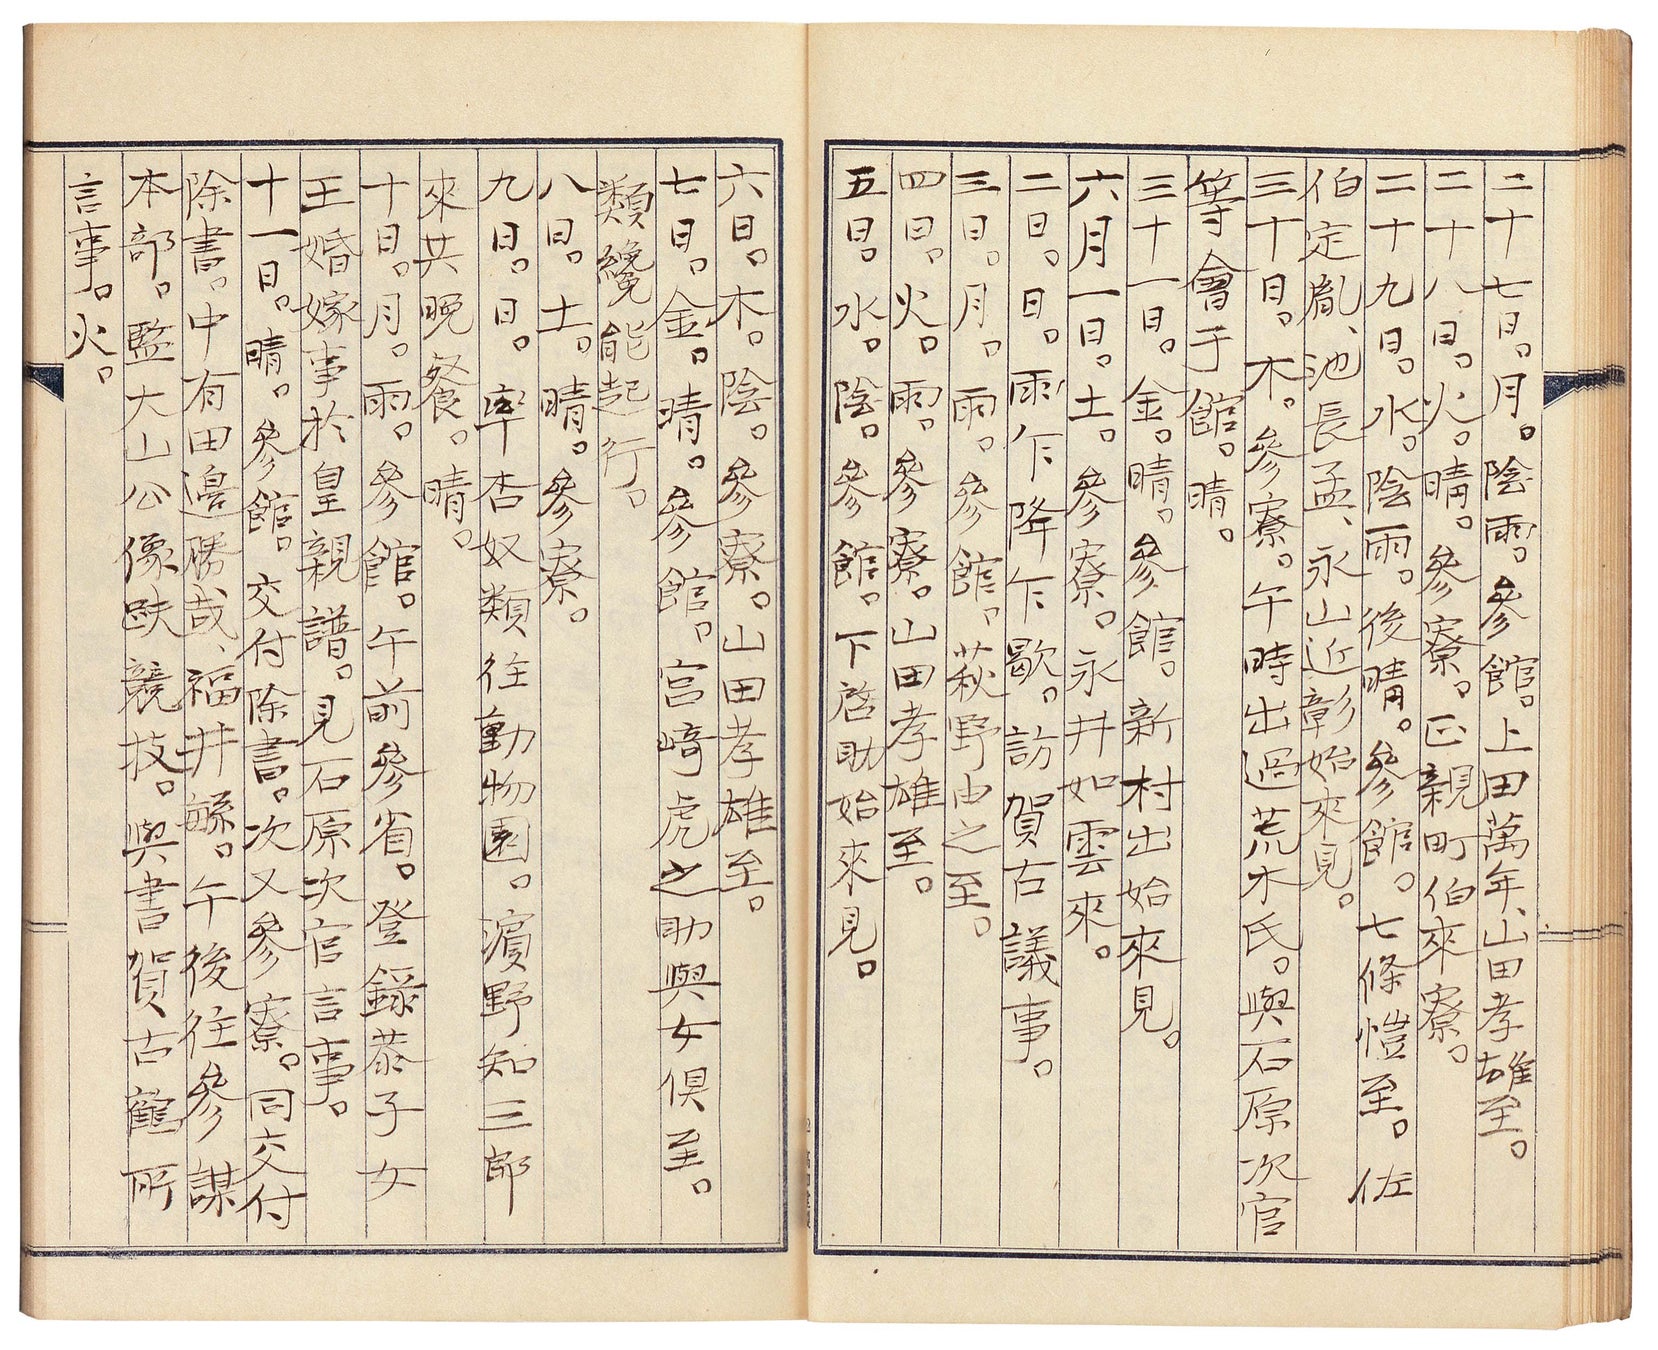 二十七日。月。陰雨。參館。上田萬年、山田孝雄至。
二十八日。火。晴。參寮。正親町伯來寮。
二十九日。水。陰雨。後晴。參館。七條愷至。佐
伯定胤、池長孟、永山近彰始來見。
三十日。木。參寮。午時出過荒木氏。與石原次官
等會于館。晴。
三十一日。金。晴。參館。新村出始來見。
六月一日。土。參寮。永井如雲來。
二日。日。雨乍降乍歇。訪賀古議事。
三日。月。雨。參館。萩野由之至。
四日。火。雨。參寮。山田孝雄至。
五日。水。陰。參館。下啓助始來見。
六日。木。陰。參寮。山田孝雄至。
七日。金。晴。參館。宮崎虎之助與女倶至。
類纔能起行。
八日。土。晴。參寮。
九日。日。率杏奴類往動物園。濱野知三郎
來共晩餐。晴。
十日。月。雨。參館。午前參省。登録恭子女
王婚嫁事於皇親譜。見石原次官言事。
十一日。晴。參館。交付除書。次又參寮。同交付
除書。中有田邊勝哉、福井繇。午後往參謀
本部。監大山公像趺競技。與書賀古鶴所
言事。火。